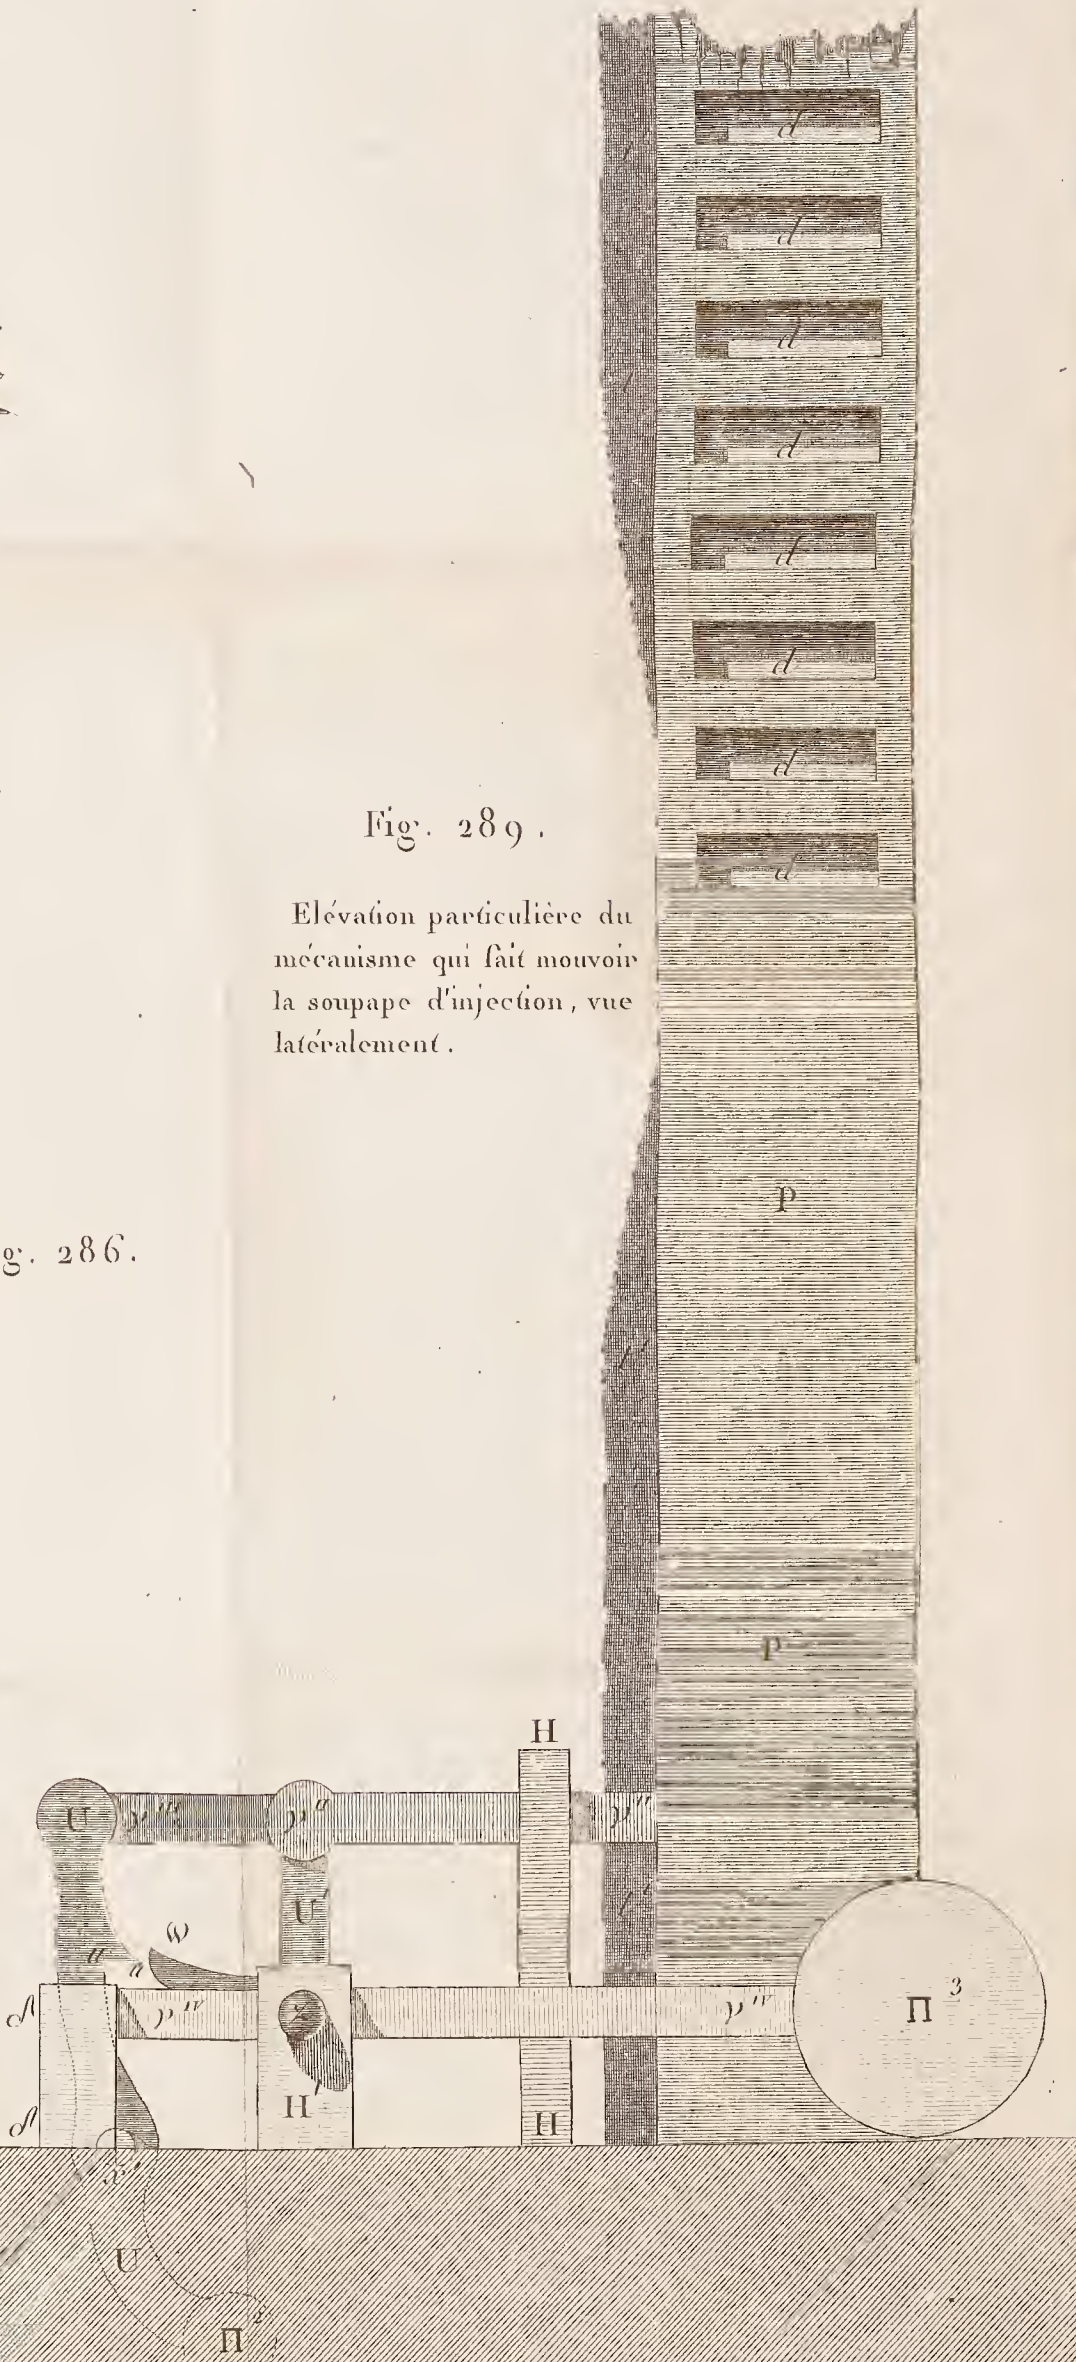 d
d
d
d
d
d
d
d
Fig. 289.
Elévation particulière du
mécanisme qui fait mouvoir
la soupape d'injection, vue
latéralement.
P
g. 286.
P
H
U ν''' ν'' ν''
U'
ω
a a
A ν'''' z ν'''' Π³
H'
A H
x
U
Π²